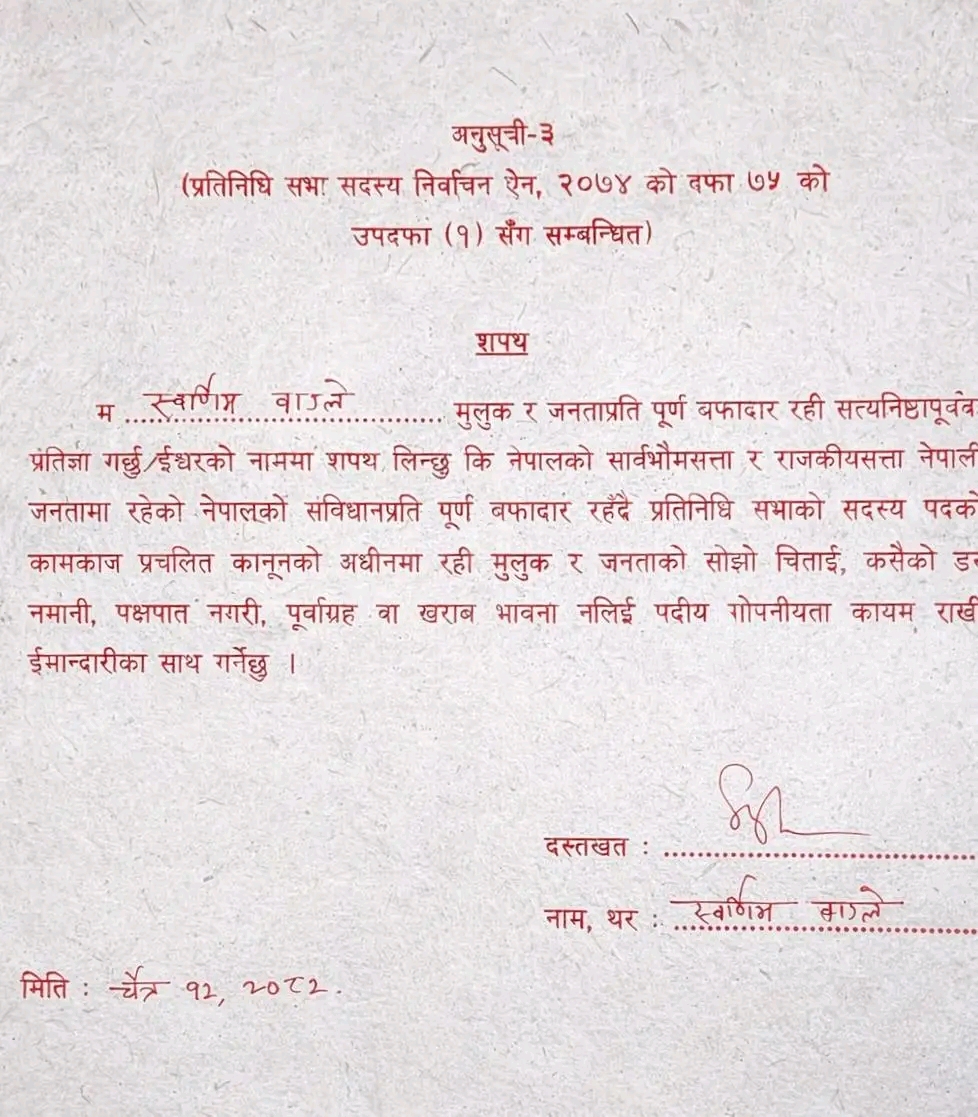 अनुसूची-३
(प्रतिनिधि सभा सदस्य निर्वाचन ऐन, २०७४ को दफा ७५ को
उपदफा (१) सँग सम्बन्धित)
शपथ
म स्वर्णिम वाग्ले मुलुक र जनताप्रति पूर्ण बफादार रही सत्यनिष्ठापूर्वव
प्रतिज्ञा गर्छु/ईश्वरको नाममा शपथ लिन्छु कि नेपालको सार्वभौमसत्ता र राजकीयसत्ता नेपाली
जनतामा रहेको नेपालको संविधानप्रति पूर्ण बफादार रहँदै प्रतिनिधि सभाको सदस्य पदको
कामकाज प्रचलित कानूनको अधीनमा रही मुलुक र जनताको सोझो चिताई, कसैको ड
नमानी, पक्षपात नगरी, पूर्वाग्रह वा खराब भावना नलिई पदीय गोपनीयता कायम राखी
ईमान्दारीका साथ गर्नेछु ।
दस्तखत :
नाम, थर : स्वर्णिम वाग्ले
मिति : चैत्र १२, २०८२.